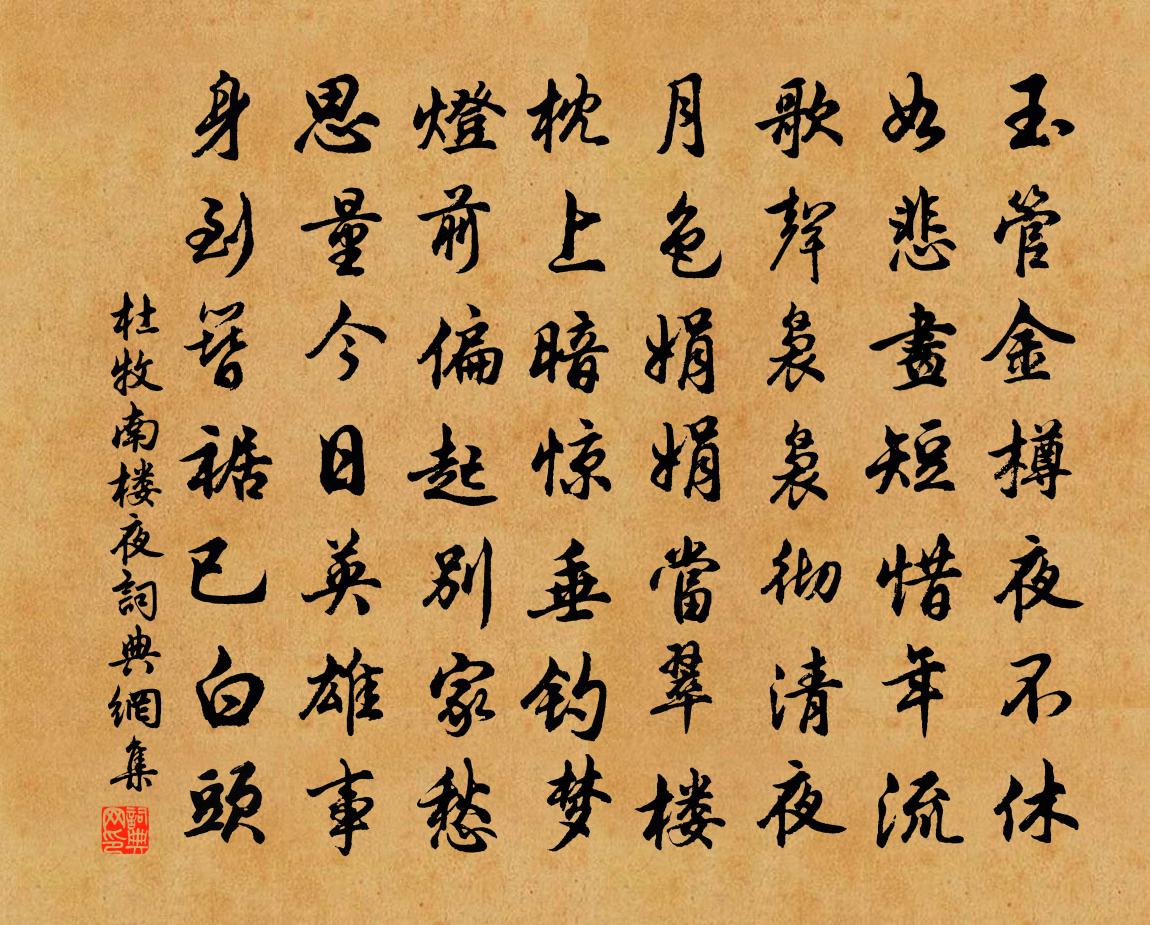 玉管金樽夜不休
如悲晝短惜年流
歌聲裊裊彻清夜
月色娟娟當翠楼
枕上暗惊垂钓梦
燈前偏起别家愁
思量今日英雄事
身到簪裾已白頭
杜牧南楼夜詞典網集
詞典网印